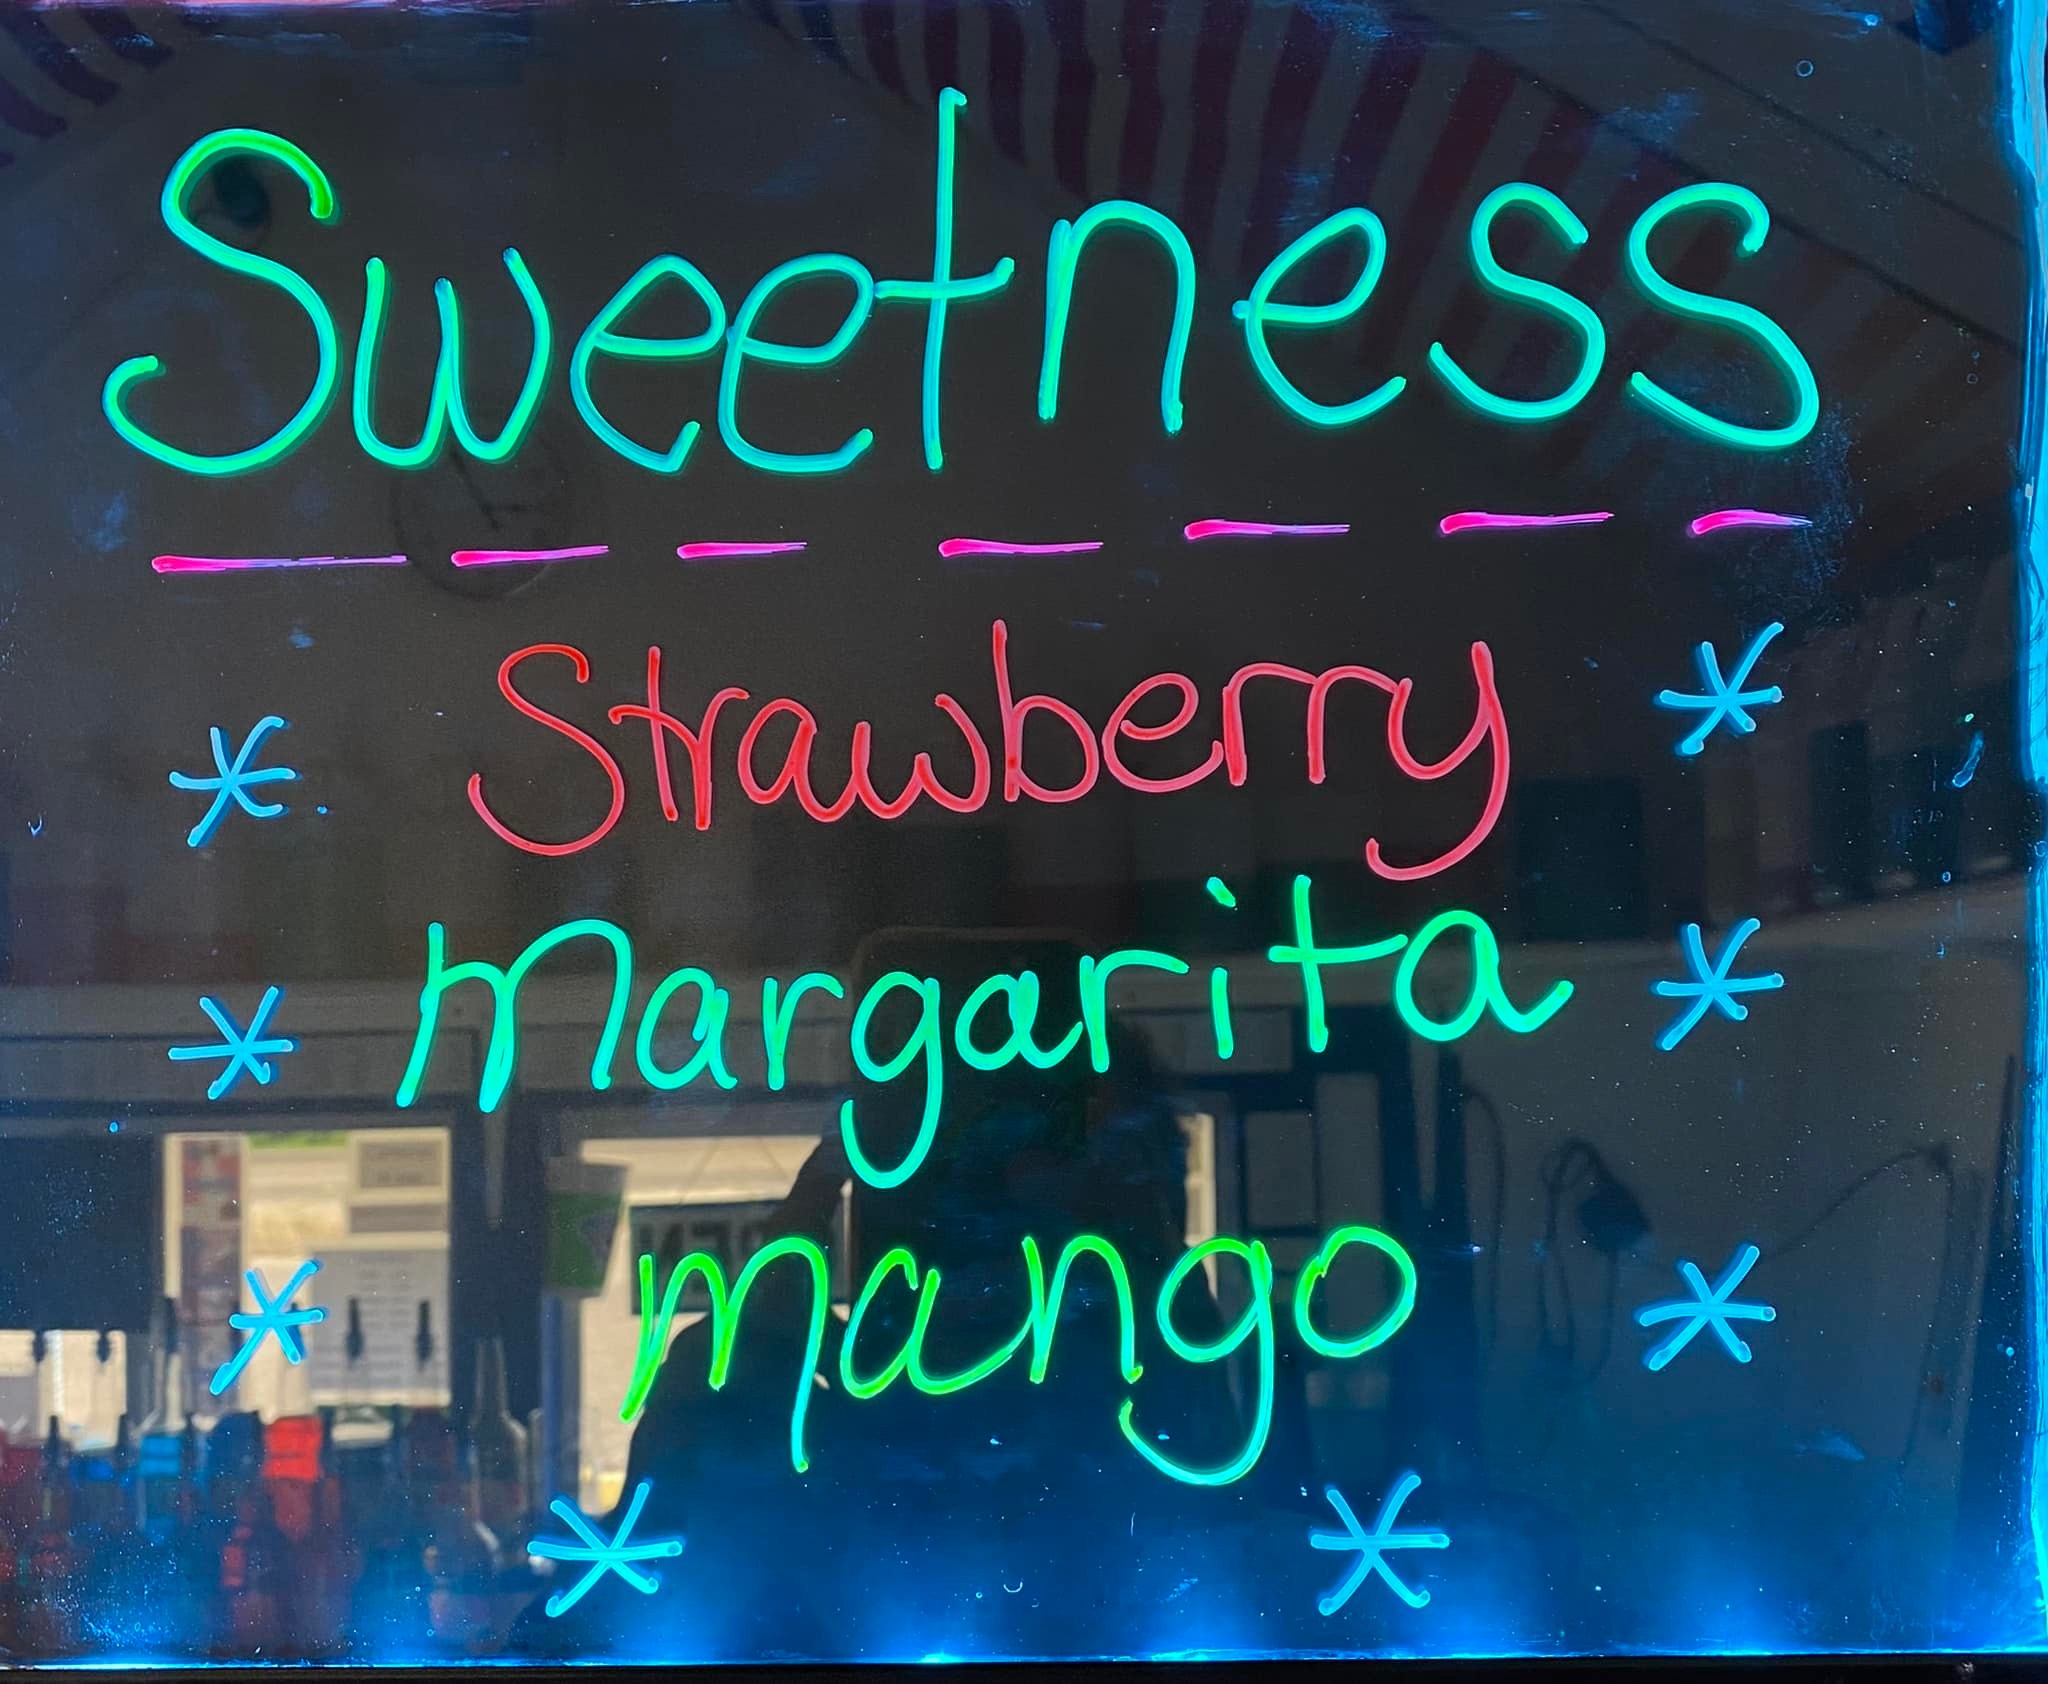 Sweetness
Strawberry
Margarita
mango